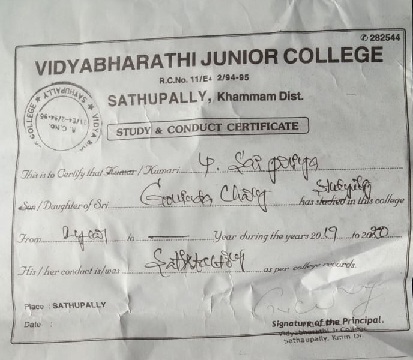 ✆ 282544
VIDYABHARATHI JUNIOR COLLEGE
R.C.No. 11/E4 2/94-95
SATHUPALLY, Khammam Dist.
STUDY & CONDUCT CERTIFICATE
This is to Certify that Kumar / Kumari P. Sai priya
Son / Daughter of Sri Chary has studied in this college
From to Year during the years 2019 to 2020
His / her conduct is/was as per college records.
Place : SATHUPALLY
Date :
Signature of the Principal.
Vidyabharathi Jr. College
Sathupally, Kmm. Dt.